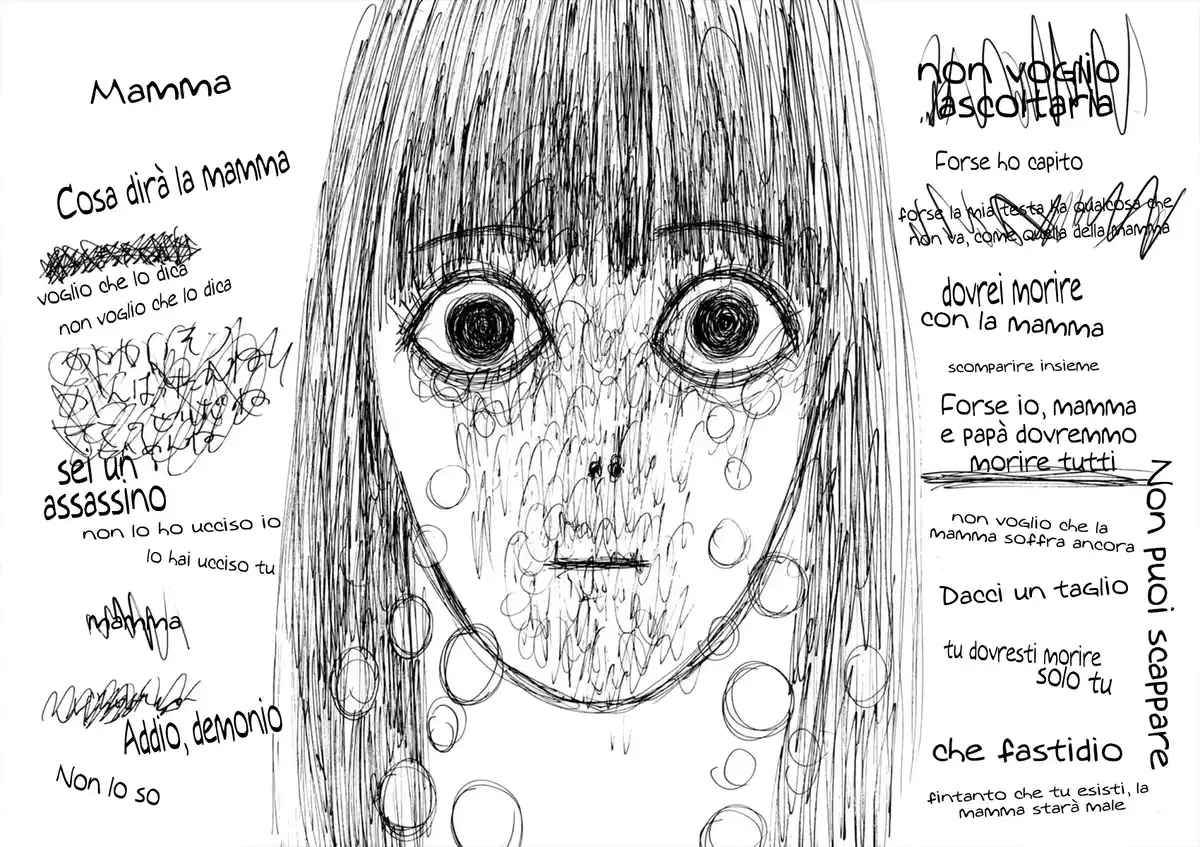 Mamma
Cosa dirà la mamma
voglio che lo dica
non voglio che lo dica
sei un
assassino
non lo ho ucciso io
lo hai ucciso tu
mamma
Addio, demonio
Non lo so
non voglio
ascoltarla
Forse ho capito
forse la mia testa ha qualcosa che
non va, come quella della mamma
dovrei morire
con la mamma
scomparire insieme
Forse io, mamma
e papà dovremmo
morire tutti
non voglio che la
mamma soffra ancora
Dacci un taglio
tu dovresti morire
solo tu
che fastidio
fintanto che tu esisti, la
mamma starà male
Non puoi scappare